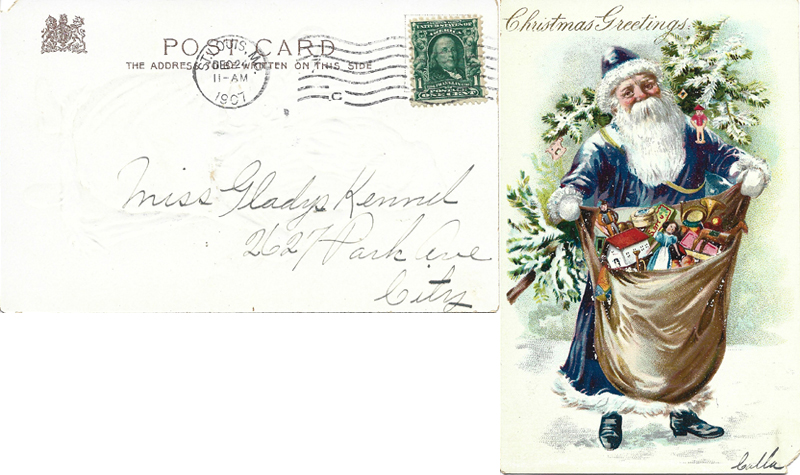 POST CARD
THE ADDRESS TO BE WRITTEN ON THIS SIDE
ST. LOUIS, MO.
DEC 24
11-AM
1907
C
UNITED STATES OF AMERICA
1 1
POSTAGE
ONE CENT
Miss Gladys Kennel
2627 Park Ave
City
Christmas Greetings.
Calla